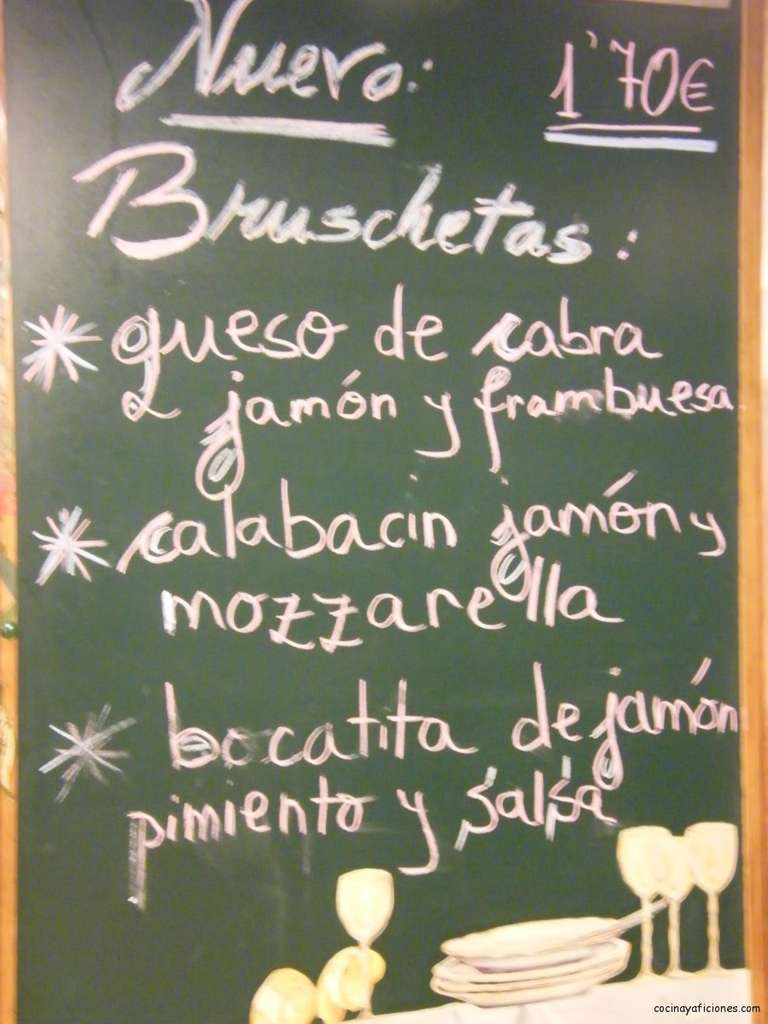 Nuevo: 1'70€
Bruschetas:
* queso de cabra
jamón y frambuesa
* calabacin jamón y
mozzarella
* bocatita de jamón
pimiento y salsa
cocinayaficiones.com